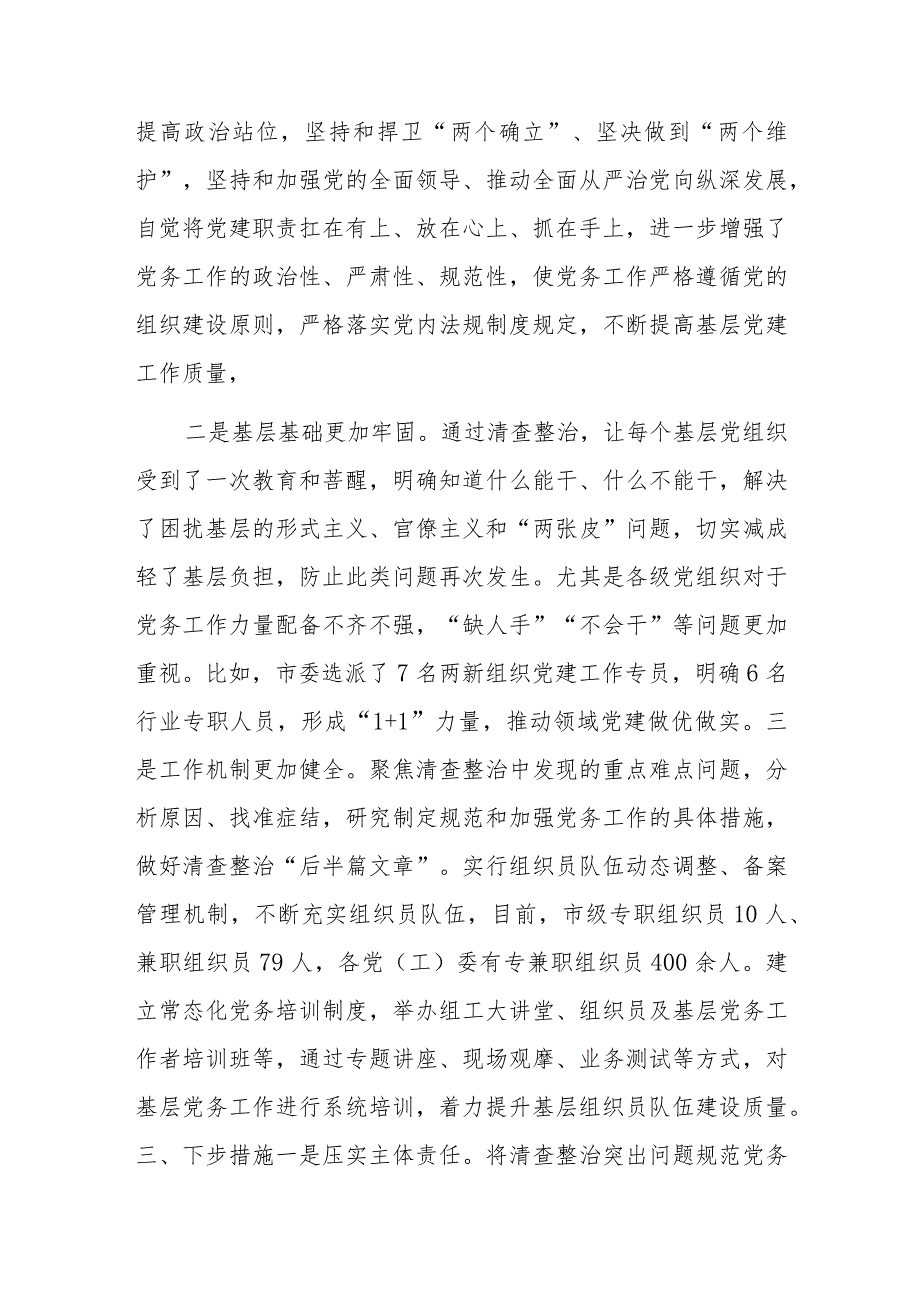 提高政治站位，坚持和捍卫“两个确立”、坚决做到“两个维
护”，坚持和加强党的全面领导、推动全面从严治党向纵深发展，
自觉将党建职责扛在有上、放在心上、抓在手上，进一步增强了
党务工作的政治性、严肃性、规范性，使党务工作严格遵循党的
组织建设原则，严格落实党内法规制度规定，不断提高基层党建
工作质量，
二是基层基础更加牢固。通过清查整治，让每个基层党组织
受到了一次教育和菩醒，明确知道什么能干、什么不能干，解决
了困扰基层的形式主义、官僚主义和“两张皮”问题，切实减成
轻了基层负担，防止此类问题再次发生。尤其是各级党组织对于
党务工作力量配备不齐不强，“缺人手”“不会干”等问题更加
重视。比如，市委选派了 7 名两新组织党建工作专员，明确 6 名
行业专职人员，形成“1+1”力量，推动领域党建做优做实。三
是工作机制更加健全。聚焦清查整治中发现的重点难点问题，分
析原因、找准症结，研究制定规范和加强党务工作的具体措施，
做好清查整治“后半篇文章”。实行组织员队伍动态调整、备案
管理机制，不断充实组织员队伍，目前，市级专职组织员 10 人、
兼职组织员 79 人，各党（工）委有专兼职组织员 400 余人。建
立常态化党务培训制度，举办组工大讲堂、组织员及基层党务工
作者培训班等，通过专题讲座、现场观摩、业务测试等方式，对
基层党务工作进行系统培训，着力提升基层组织员队伍建设质量。
三、下步措施一是压实主体责任。将清查整治突出问题规范党务